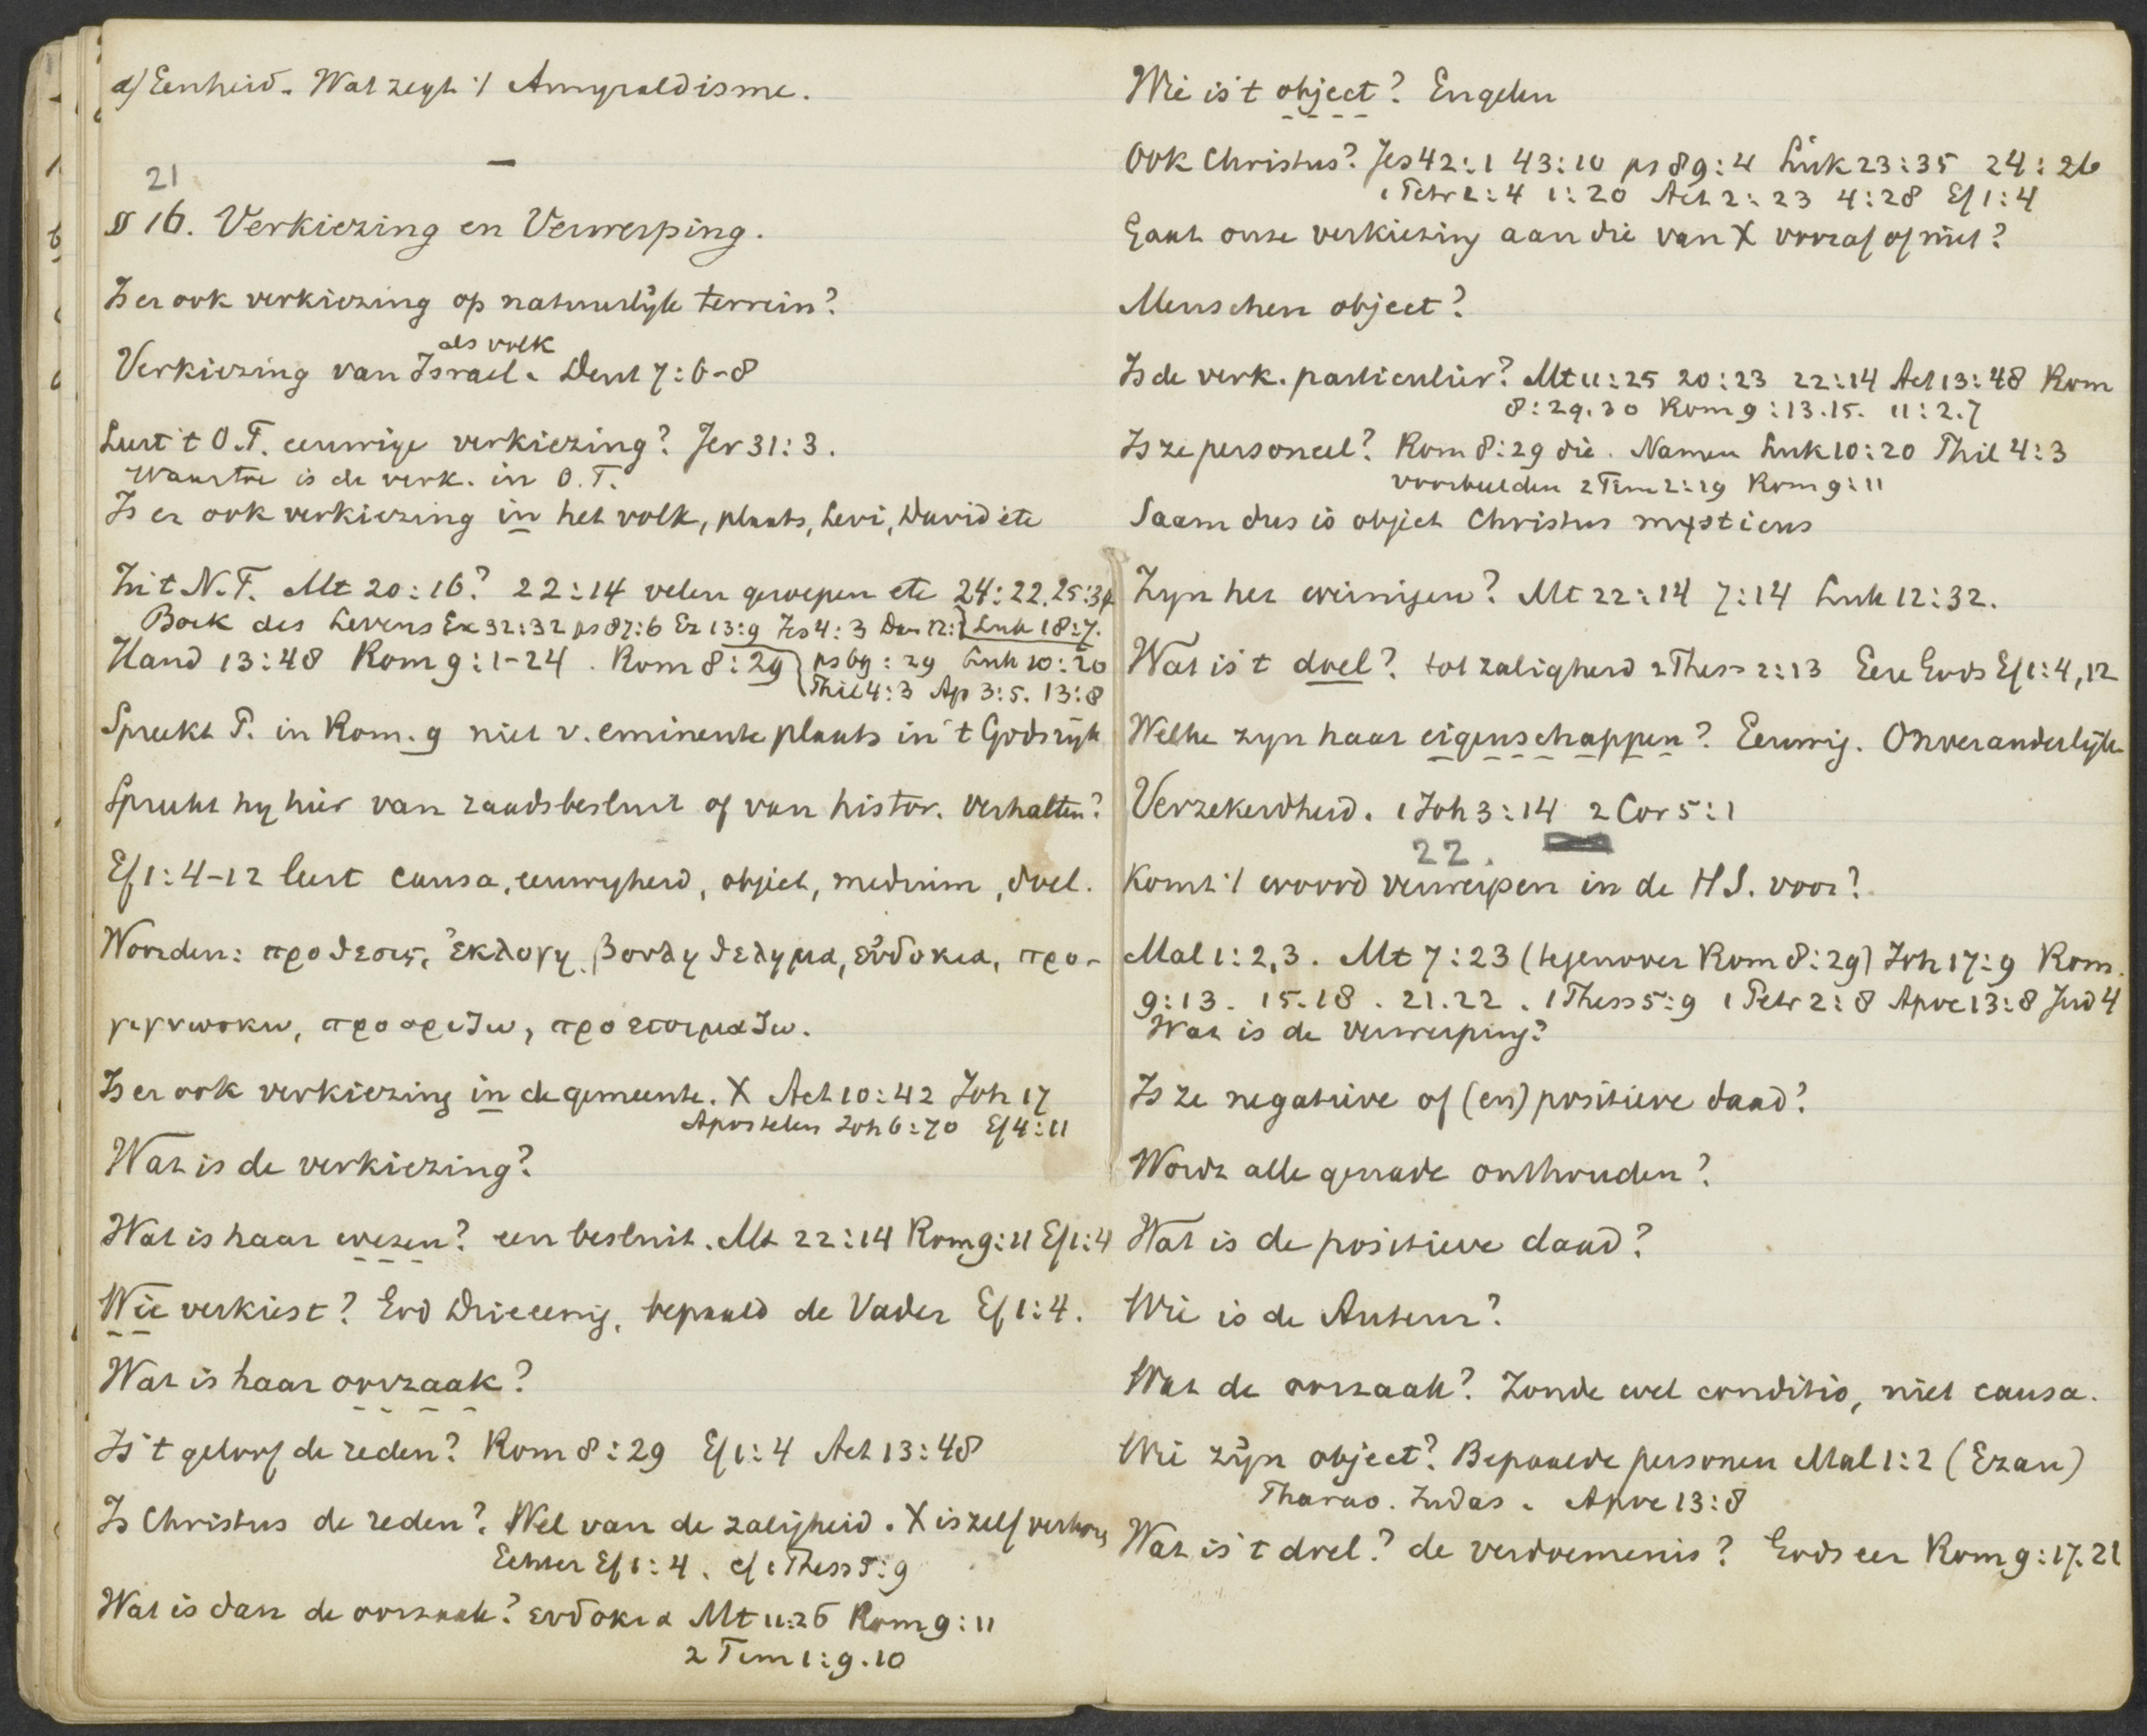 d) Eenheid. Wat zegt 't Amyraldisme.
—
21
§ 16. Verkiezing en Verwerping.
Is er ook verkiezing op natuurlijk terrein?
als volk
Verkiezing van Israel. Deut 7:6-8
Leert 't O.T. eeuwige verkiezing? Jer 31:3.
Waartoe is de verk. in O.T.
Is er ook verkiezing in het volk, plaats, Levi, David etc
In 't N.T. Mt 20:16? 22:14 velen geroepen etc 24:22. 25:34
Boek des Levens Ex 32:32 ps 87:6 Ez 13:9 Jes 4:3 Dan 12:1 Luk 18:7.
Hand 13:48 Rom 9:1-24. Rom 8:29 ps 69:29 Luk 10:20
Phil 4:3 Ap 3:5. 13:8
Spreekt P. in Rom. 9 niet v. eminente plaats in 't Godsrijk
Spreekt hy hier van raadsbesluit of van histor. Verhalten?
Ef 1:4-12 leert causa, eeuwigheid, object, medium, doel.
Woorden: προθεσις, ἐκλογη, βουλη θελημα, εὐδοκια, προ-
γιγνωσκω, προοριζω, προετοιμαζω.
Is er ook verkiezing in de gemeente. X Act 10:42 Joh 17
Apostelen Joh 6:70 Ef 4:11
Wat is de verkiezing?
Wat is haar wezen? een besluit. Mt 22:14 Rom 9:11 Ef 1:4
Wie verkiest? God Drieenig, bepaald de Vader Ef 1:4.
Wat is haar oorzaak?
Is 't geloof de reden? Rom 8:29 Ef 1:4 Act 13:48
Is Christus de reden? Wel van de zaligheid. X is zelf verkoren
Echter Ef 1:4. cf 1 Thess 5:9
Wat is dan de oorzaak? ευδοκια Mt 11:26 Rom 9:11
2 Tim 1:9.10
Wie is 't object? Engelen
Ook Christus? Jes 42:1 43:10 ps 89:4 Luk 23:35 24:26
1 Petr 2:4 1:20 Act 2:23 4:28 Ef 1:4
Gaat onze verkiezing aan die van X vooraf of niet?
Menschen object?
Is de verk. particulier? Mt 11:25 20:23 22:14 Act 13:48 Rom
8:29.30 Rom 9:13.15. 11:2.7
Is ze personeel? Rom 8:29 die. Namen Luk 10:20 Phil 4:3
voorbeelden 2 Tim 2:19 Rom 9:11
Saam dus is object Christus mysticus
Zyn het weinigen? Mt 22:14 7:14 Luk 12:32.
Wat is 't doel? tot zaligheid 2 Thess 2:13 Eere Gods Ef 1:4,12
Welke zyn haar eigenschappen? Eeuwig. Onveranderlijk
Verzekerdheid. 1 Joh 3:14 2 Cor 5:1
22.
Komt 't woord verwerpen in de H S. voor?
Mal 1:2,3. Mt 7:23 (tegenover Rom 8:29) Joh 17:9 Rom.
9:13. 15.18. 21.22. 1 Thess 5:9 1 Petr 2:8 Apoc 13:8 Jud 4
Wat is de verwerping?
Is ze negatieve of (en) positieve daad?
Wordt alle genade onthouden?
Wat is de positieve daad?
Wie is de Auteur?
Wat de oorzaak? Zonde wel conditio, niet causa.
Wie zijn object? Bepaalde personen Mal 1:2 (Ezau)
Pharao. Judas. Apoc 13:8
Wat is 't doel? de verdoemenis? Gods eer Rom 9:17.21